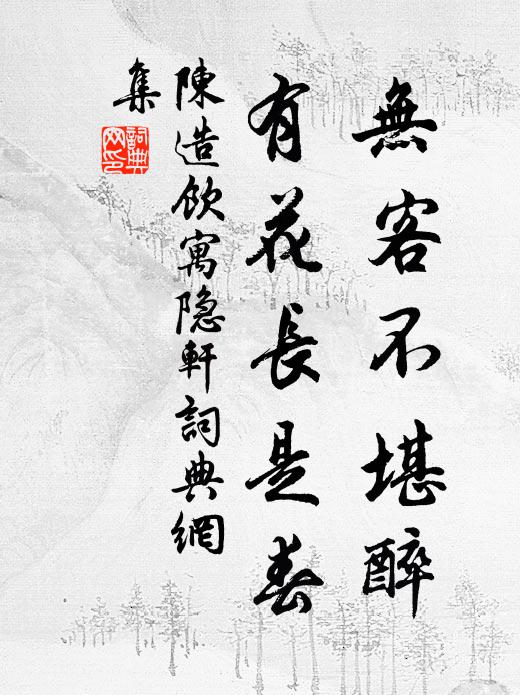 無客不堪醉
有花長是春
陳造飲寓隱軒詞典網
集
詞典網印